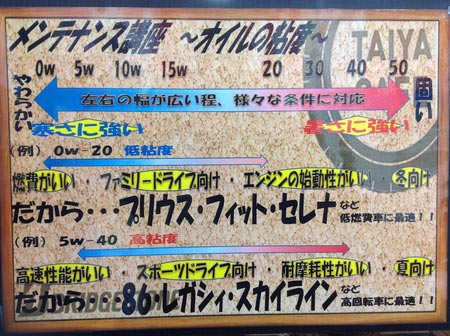 メンテナンス講座 ~オイルの粘度~
TAIYA
0w 5w 10w 15w 20 30 40 50
やわらかい
固い
左右の幅が広い程、様々な条件に対応
寒さに強い 暑さに強い
(例) 0w-20 低粘度
燃費がいい・ファミリードライブ向け・エンジンの始動性がいい・冬向け
だから・・・プリウス・フィット・セレナなど 低燃費車に最適!!
(例) 5w-40 高粘度
高速性能がいい・スポーツドライブ向け・耐摩耗性がいい・夏向け
だから・・・86・レガシィ・スカイラインなど 高回転車に最適!!